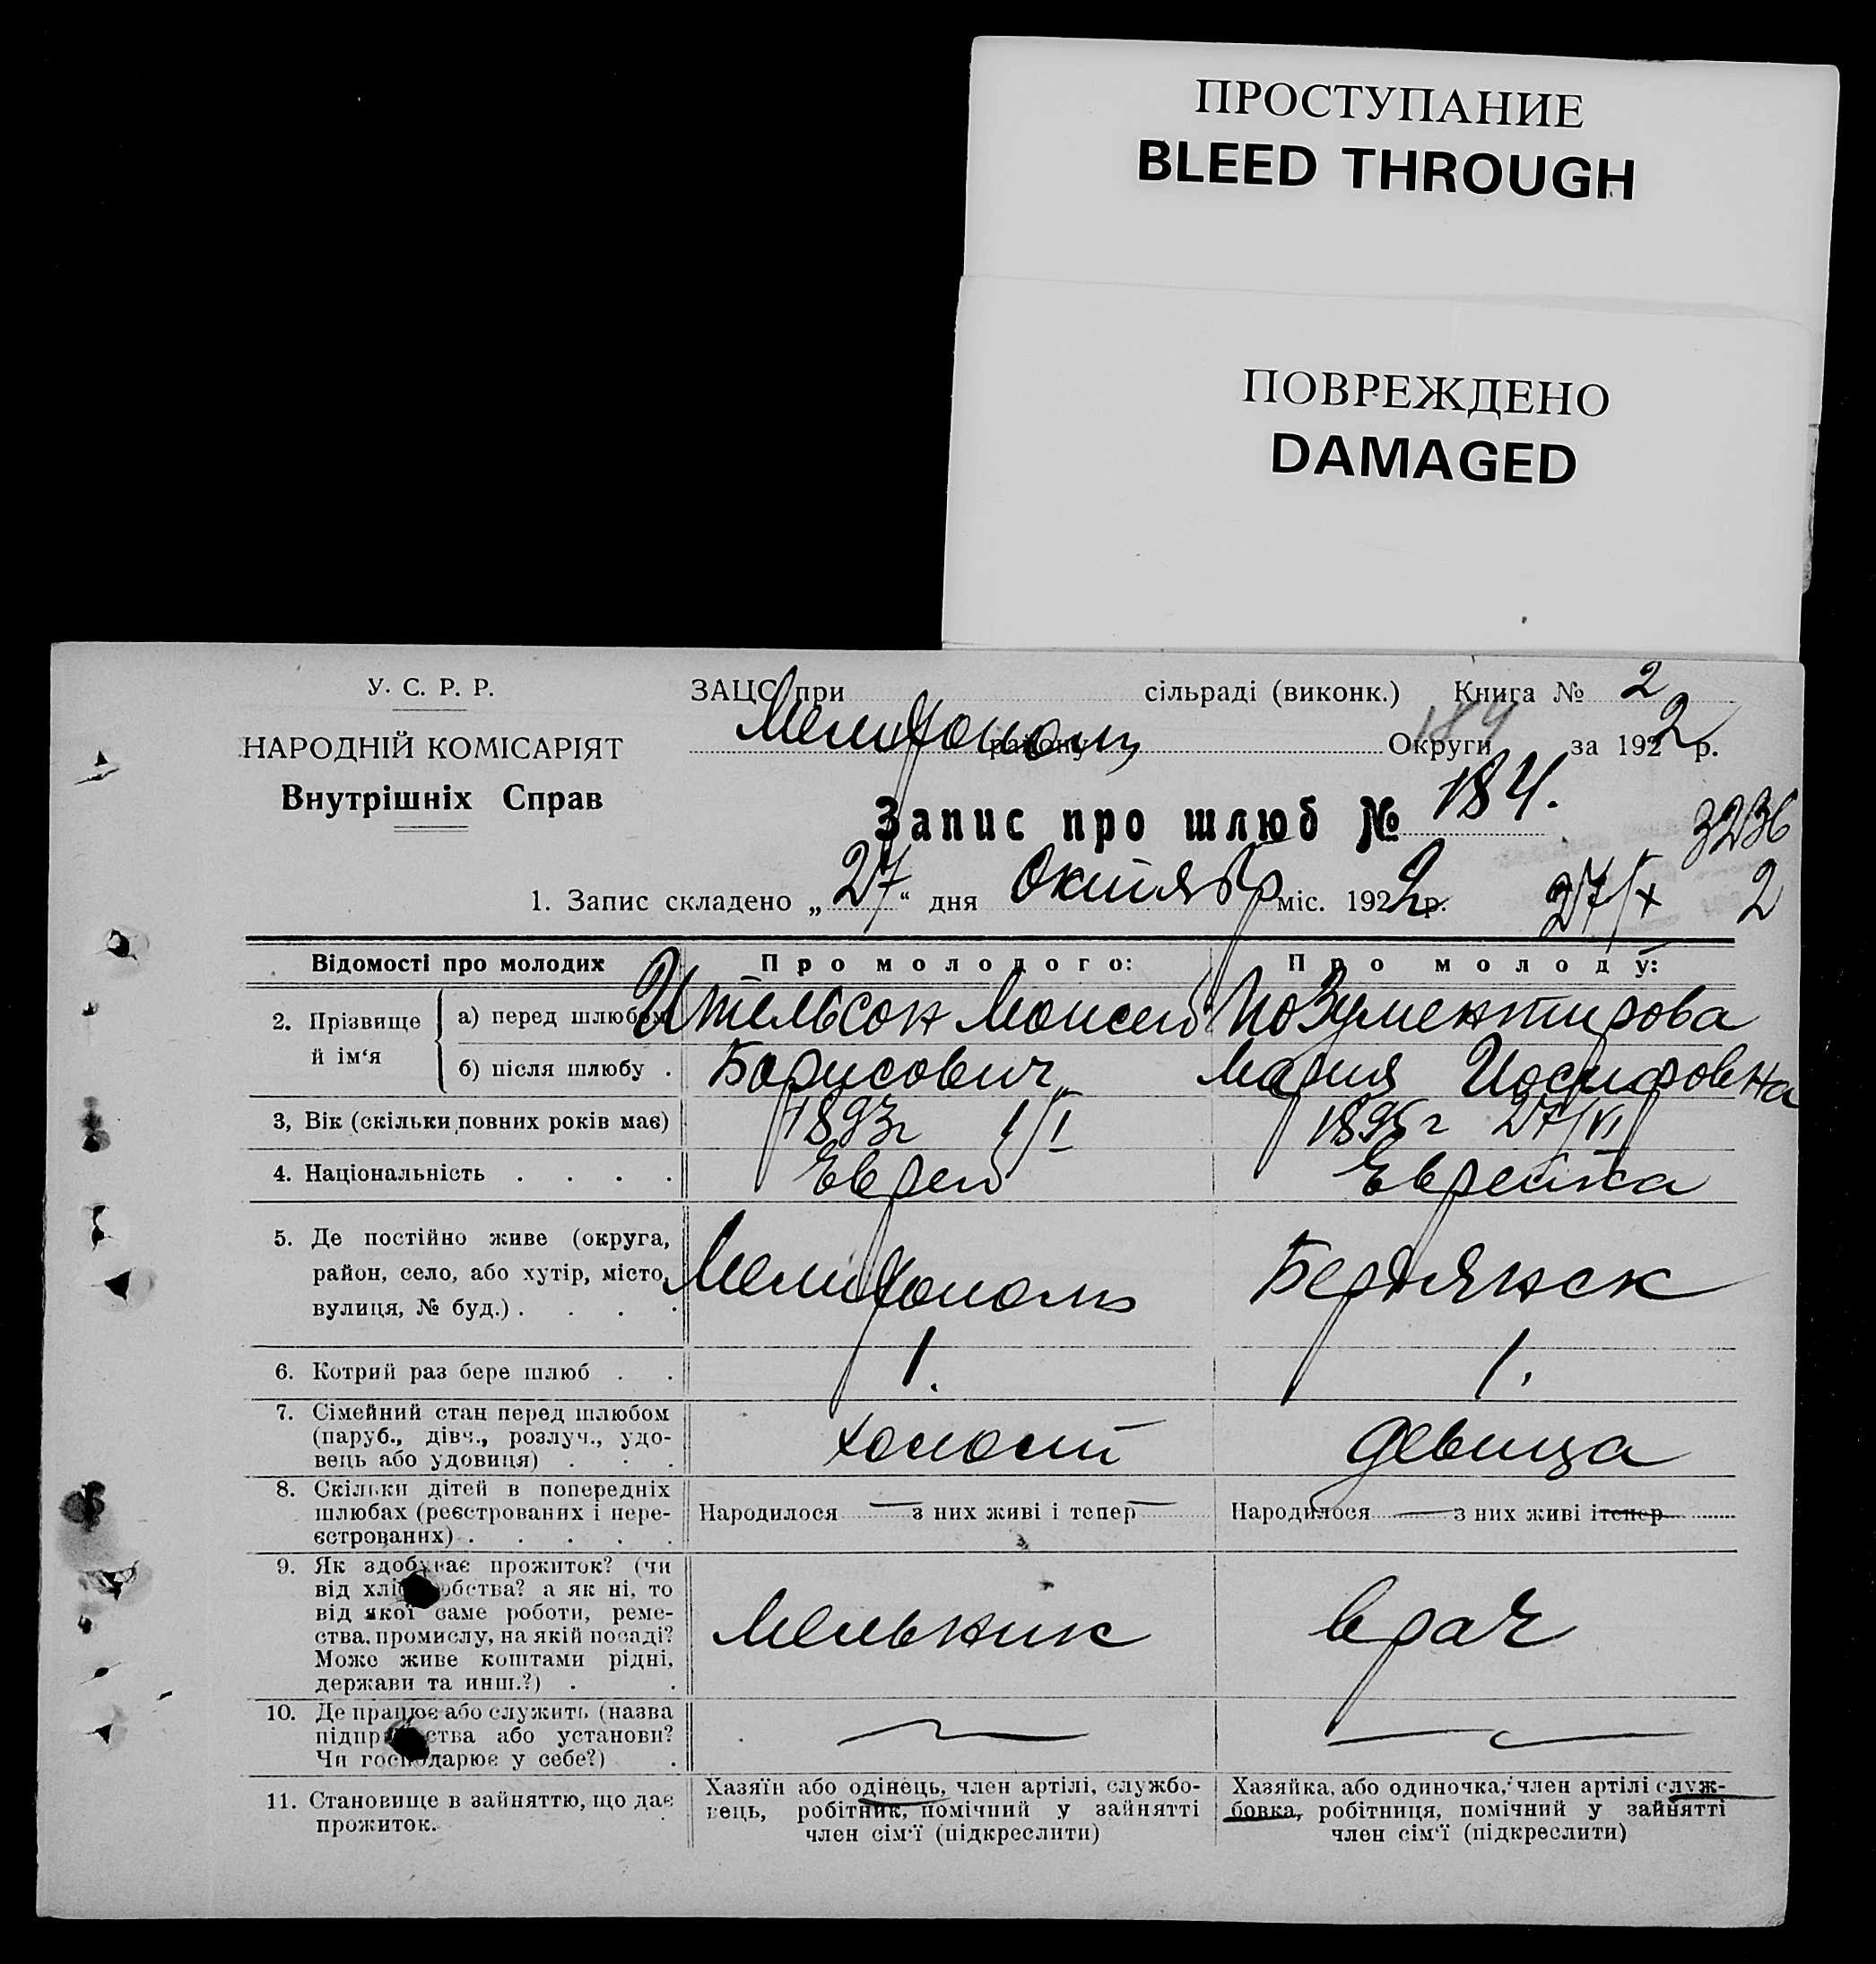 ПРОСТУПАНИЕ
BLEED THROUGH
ПОВРЕЖДЕНО
DAMAGED
У. С. Р. Р.
НАРОДНІЙ КОМІСАРІЯТ
Внутрішніх Справ
ЗАЦС при сільраді (виконк.) Книга № 2
Мелитополь району 184 Округи за 1922 р.
Запис про шлюб № 184.
3236
1. Запис складено „27“ дня Октября міс. 1922 р. 27/X 2
Відомості про молодих
Про молодого:
Про молоду:
2. Прізвище й ім‘я
а) перед шлюбом
Ительсон Моисей
Позументирова
б) після шлюбу .
Борисович
Мария Иосифовна
3, Вік (скільки повних років має)
1893г 1/I
1895г 27/VI
4. Національність . . . .
Еврей
Еврейка
5. Де постійно живе (округа,
район, село, або хутір, місто,
вулиця, № буд.) . . . .
Мелитополь
Бердянск
6. Котрий раз бере шлюб . .
1.
1.
7. Сімейний стан перед шлюбом
(паруб., дівч., розлуч., удо-
вець або удовиця) . . .
холост
девица
8. Скільки дітей в попередніх
шлюбах (реєстрованих і нере-
єстрованих) . . . . .
Народилося — з них живі і тепер —
Народилося — з них живі і тепер
9. Як здобуває прожиток? (чи
від хліборобства? а як ні, то
від якої саме роботи, реме-
ства, промислу, на якій посаді?
Може живе коштами рідні,
держави та инш.?) . .
Мельник
врач
10. Де працює або служить (назва
підприємства або установи?
Чи господарює у себе?) .
—
—
11. Становище в зайняттю, що дає
прожиток.
Хазяїн або одінець, член артілі, службо-
вець, робітник, помічний у зайнятті
член сім‘ї (підкреслити)
Хазяйка, або одиночка, член артілі служ-
бовка, робітниця, помічний у зайнятті
член сім‘ї (підкреслити)